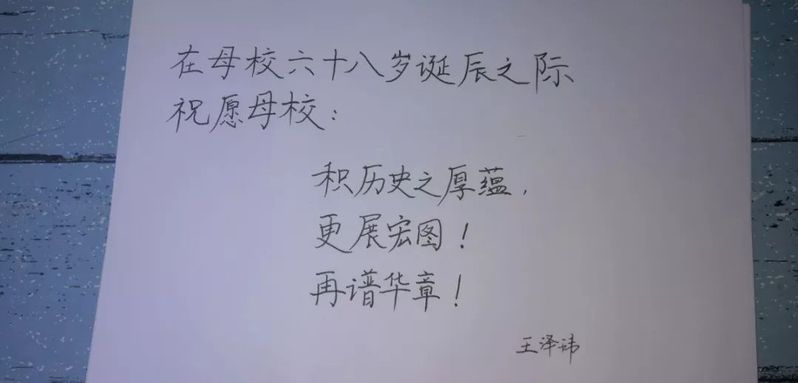 在母校六十八岁诞辰之际
祝愿母校：
积历史之厚蕴，
更展宏图！
再谱华章！
王泽讳